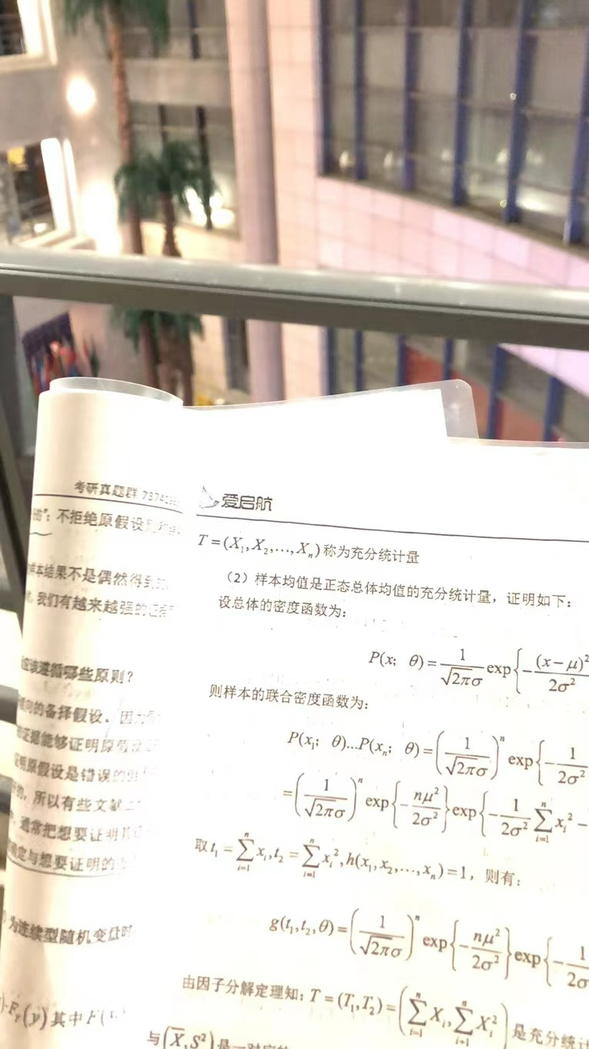 考研真题群
不拒绝原假设
样本结果不是偶然得到的
我们有越来越强的证据
应该遵循哪些原则?
的备择假设。因为
证据能够证明原假设
原假设是错误的
所以有些文献
通常把想要证明
与想要证明的
为连续型随机变量时
F_Y(y)其中F(
爱启航
T=(X₁,X₂,…,Xₙ)称为充分统计量
(2)样本均值是正态总体均值的充分统计量,证明如下:
设总体的密度函数为:
P(x; θ)=1/(√(2π)σ) exp{-(x-μ)²/(2σ²)
则样本的联合密度函数为:
P(x₁; θ)…P(xₙ; θ)=(1/(√(2π)σ))ⁿ exp{-1/(2σ²)
=(1/(√(2π)σ))ⁿ exp{-nμ²/(2σ²)}exp{-1/(2σ²) ∑ⁿᵢ₌₁ xᵢ²-
取t₁=∑ⁿᵢ₌₁ xᵢ,t₂=∑ⁿᵢ₌₁ xᵢ²,h(x₁,x₂,…,xₙ)=1,则有:
g(t₁,t₂,θ)=(1/(√(2π)σ))ⁿ exp{-nμ²/(2σ²)}exp{-1/(2σ
由因子分解定理知:T=(T₁,T₂)=(∑ⁿᵢ₌₁ Xᵢ,∑ⁿᵢ₌₁ Xᵢ²)是充分统计
与(X̄,S²)是一对应的